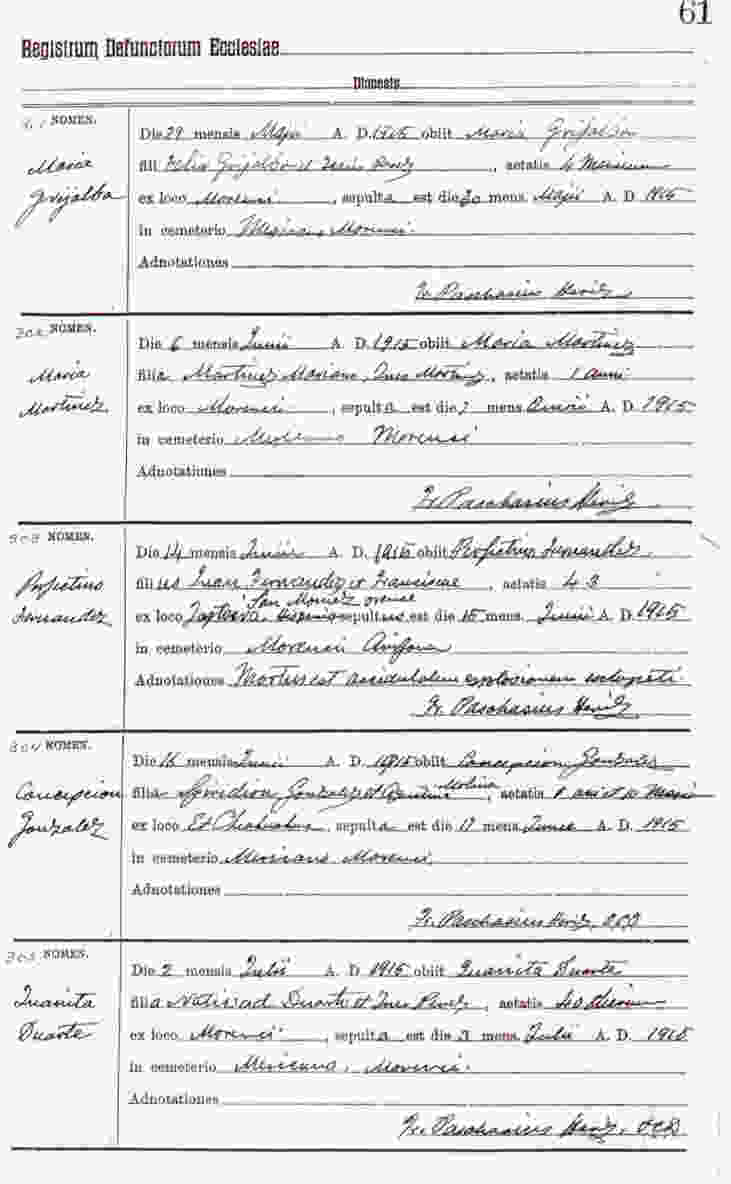 61
Registrum Defunctorum Ecclesiae
Diocesis
NOMEN.
Maria
Grijalba
Die 29 mensis Maji A. D. 1915 obiit Maria Grijalba
fili Grijalba et Perez, aetatis 4 Mensium
ex loco Morenci, sepulta est die 30 mens. Maji A. D. 1915
in cemeterio Mexicano Morenci.
Adnotationes
Fr. Paschasius Heriz
302 NOMEN.
Maria
Martinez
Die 6 mensis Junii A. D. 1915 obiit Maria Martinez
filia Martinez Mariano, Ines, aetatis 1 anni
ex loco Morenci, sepulta est die 7 mens. Junii A. D. 1915
in cemeterio Mexicano Morenci
Adnotationes
Fr. Paschasius Heriz
303 NOMEN.
Perfectino
Fernandez
Die 14 mensis Junii A. D. 1915 obiit Fernandez
filius Juan Fernandez et Franciscae, aetatis 43
San
ex loco sepultus est die 15 mens. Junii A. D. 1915
in cemeterio Morenci Arizona
Adnotationes Mortus est explosionem
Fr. Paschasius Heriz
304 NOMEN.
Concepcion
Gonzalez
Die 16 mensis Junii A. D. 1915 obiit Concepcion Gonzales
Molina
filia Spiridion Gonzalez et, aetatis
ex loco El Chihuahua, sepulta est die 17 mens. Junii A. D. 1915
in cemeterio Mexicano Morenci
Adnotationes
Fr. Paschasius Heriz, OCD
305 NOMEN.
Juanita
Duarte
Die 2 mensis Julii A. D. 1915 obiit Juanita Duarte
filia Natividad Duarte et Ines Perez, aetatis 40 dierum
ex loco Morenci, sepulta est die 3 mens. Julii A. D. 1915
in cemeterio Mexicano, Morenci.
Adnotationes
Fr. Paschasius Heriz, OCD